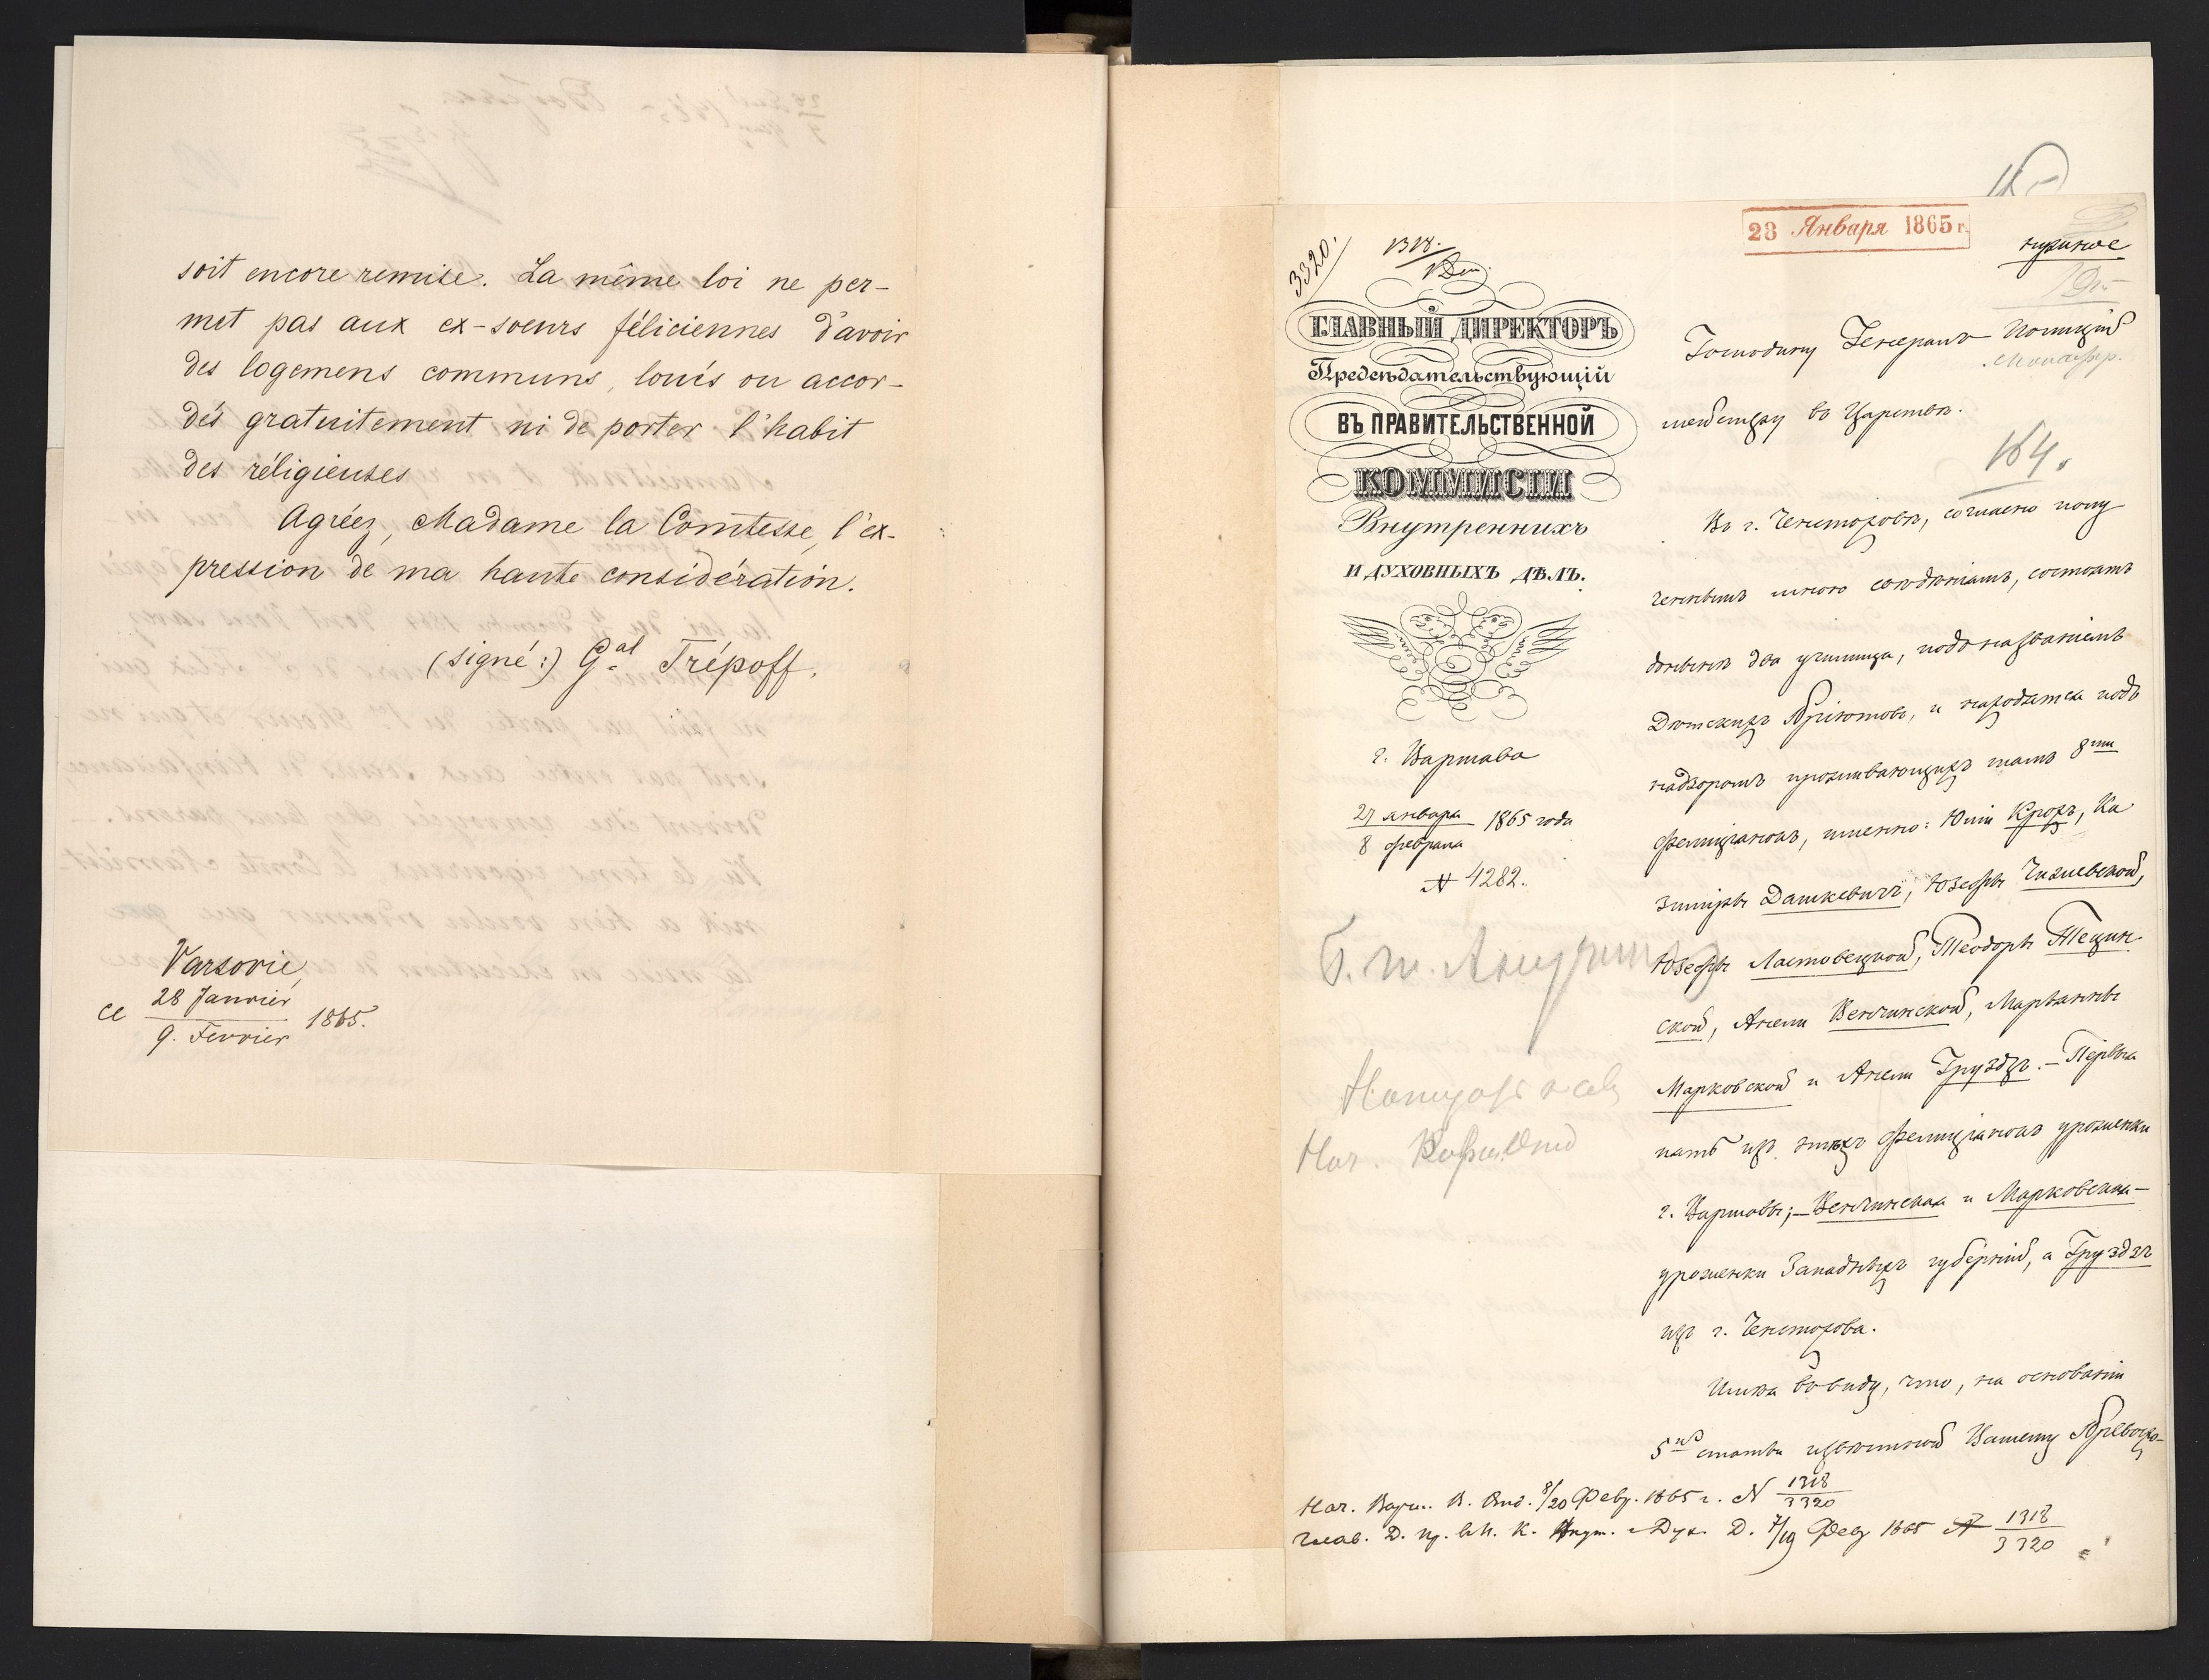 soit encore remise. La même loi ne per-
met pas aux ex-soeurs féliciennes d'avoir
des logemens communs, loués ou accor-
dés gratuitement ni de porter l'habit
des réligieuses
Agréez, Madame la Comtesse, l'ex-
pression de ma haute considération.
(signé:) Gal Trépoff.
Varsovie,
ce 28 Janvier / 9. Fevrier 1865.
28 Января 1865 г.
нужное
3320.
1318.
ГЛАВНЫЙ ДИРЕКТОРЪ
Предсѣдательствующій
ВЪ ПРАВИТЕЛЬСТВЕННОЙ
КОММИСІИ
Внутреннихъ
И ДУХОВНЫХЪ ДѢЛЪ.
г. Варшава
27 января / 8 февраля 1865 года
№ 4282.
Господину Генералъ Полицій
мейстеру въ Царствѣ.
164.
Въ г. Ченстоховѣ, согласно полу
ченнымъ мною свѣдѣніямъ, состоятъ
донынѣ два училища, подъ названіемъ
Дѣтскихъ Пріютовъ, и находятся подъ
надзоромъ проживающихъ тамъ 8ми
Фелиціанокъ, именно: Юліи Крохъ, Ка
зиміры Дашкевичъ, Юзефы Чижевской,
Юзефы Ластовецкой, Теодоры Тещин
ской, Анели Венчинской, Марьянны
Марковской и Анели Груздзъ. – Первыя
пять изъ этихъ Фелиціанокъ уроженки
г. Варшавы; – Венчинская и Марковская –
уроженки Западныхъ губерній, а Груздзъ
изъ г. Ченстохова.
Имѣя въ виду, что, на основаніи
5ой статьи извѣстной Вашему Превосхо-
Нач. Варш. В. Отд. 8/20 Февр. 1865 г. № 1318/3320
Глав. Д. пр. въ П. К. Внут. и Дух. Д. 7/19 Фев 1865 № 1318/3320